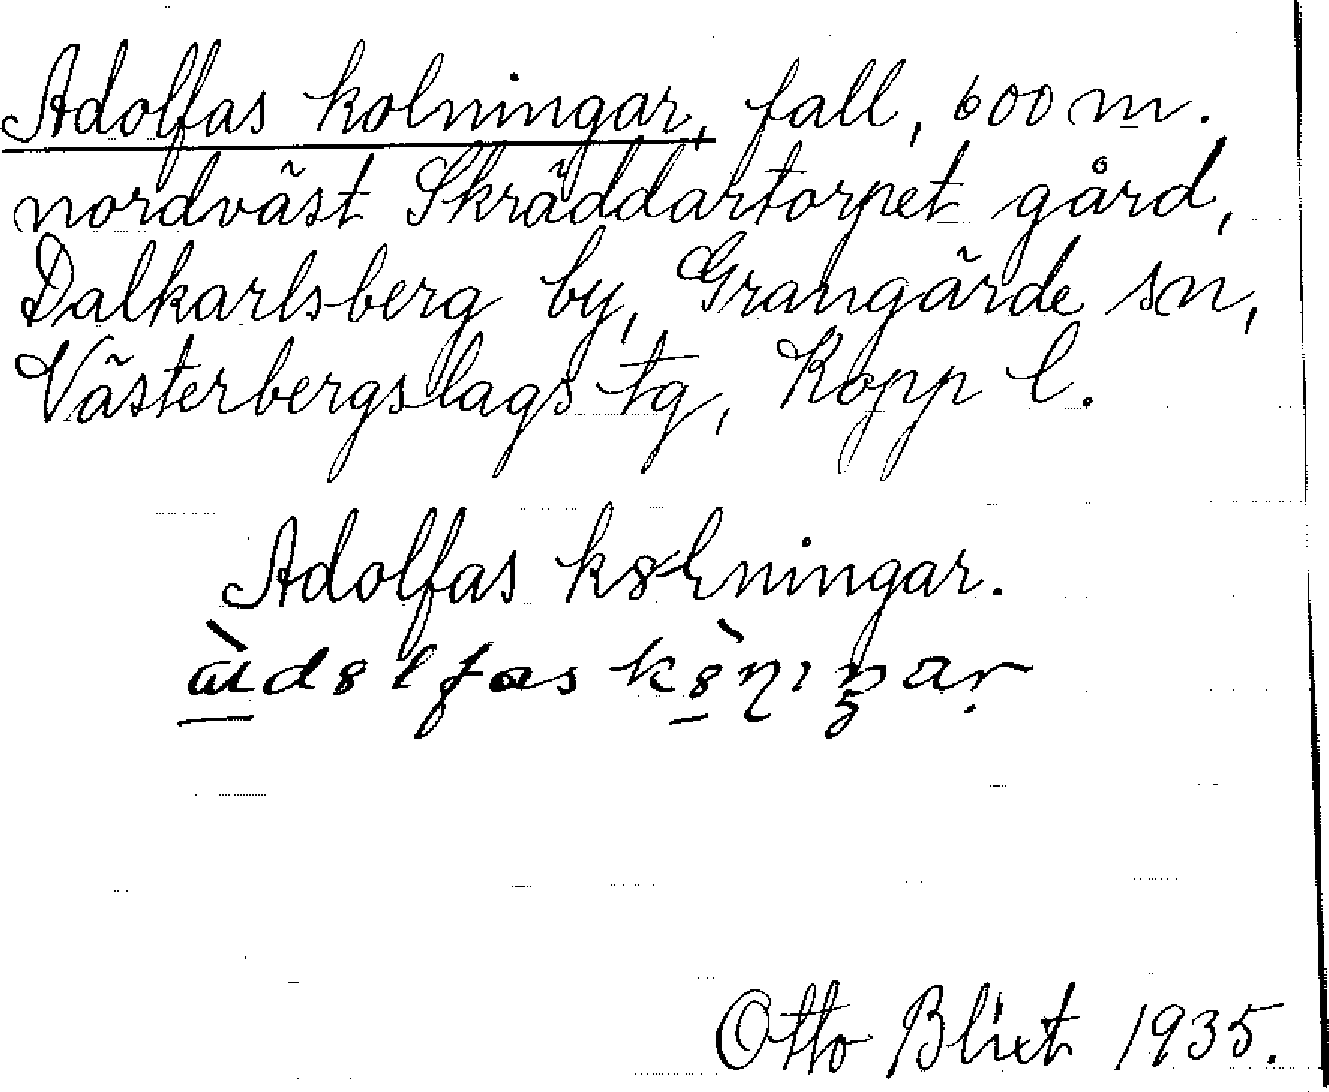 Adolfas kolningar, fall, 600 m.
nordväst Skräddartorpet gård,
Dalkarlsberg by, Grangärde sn,
Västerbergslags tg, Kopp l.
Adolfas k8Ɫningar.
Otto Blixt 1935.